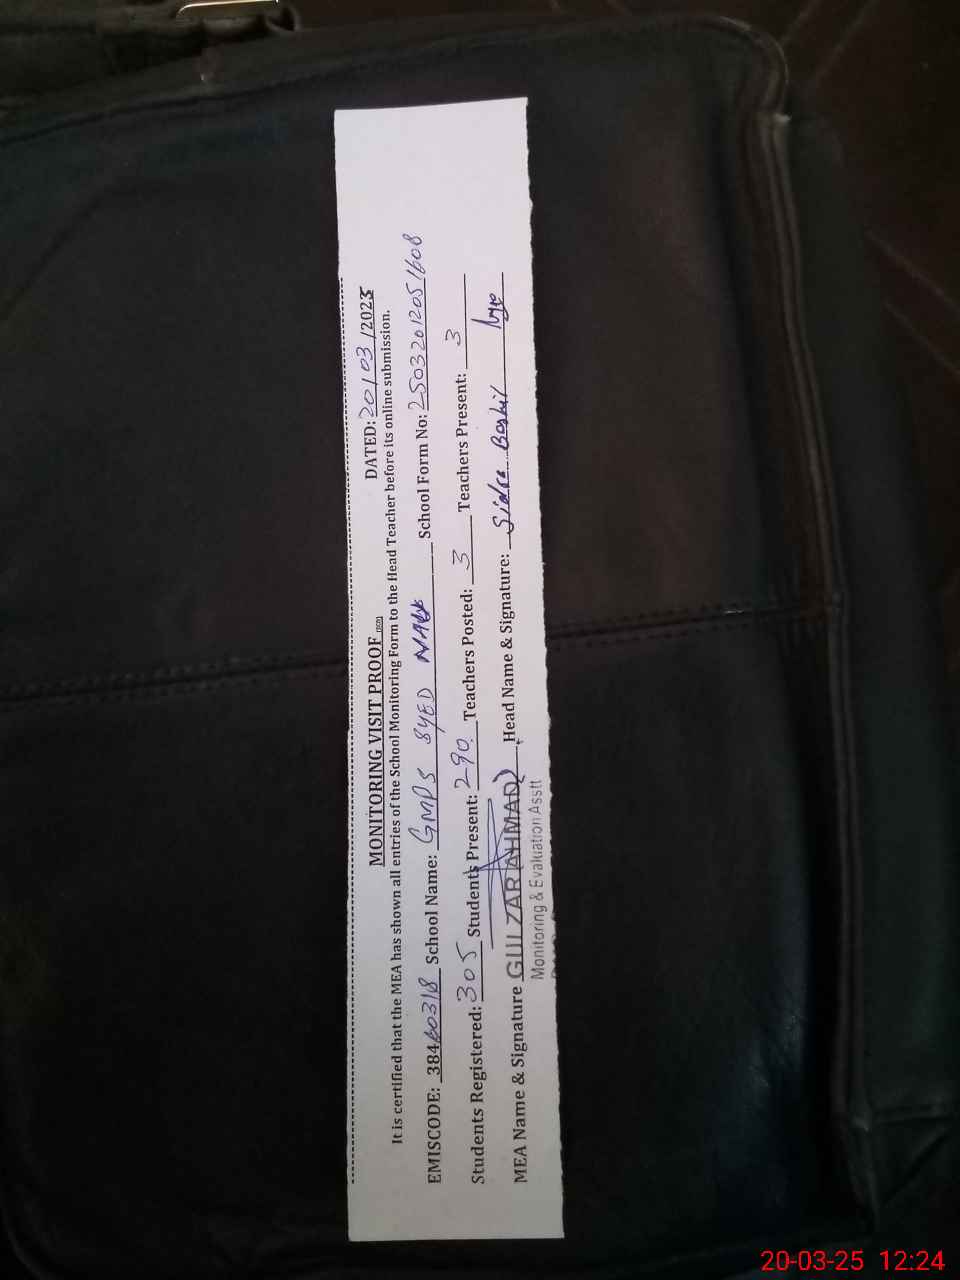 MONITORING VISIT PROOF
DATED: 20/03/2025
It is certified that the MEA has shown all entries of the School Monitoring Form to the Head Teacher before its online submission.
EMISCODE: 38460318 School Name: GMPS SYED School Form No: 25032012051608
Students Registered: 305 Students Present: 290 Teachers Posted: 3 Teachers Present: 3
MEA Name & Signature GULZAR AHMAD Head Name & Signature: Sidra Bashir
Monitoring & Evaluation Asstt
20-03-25 12:24